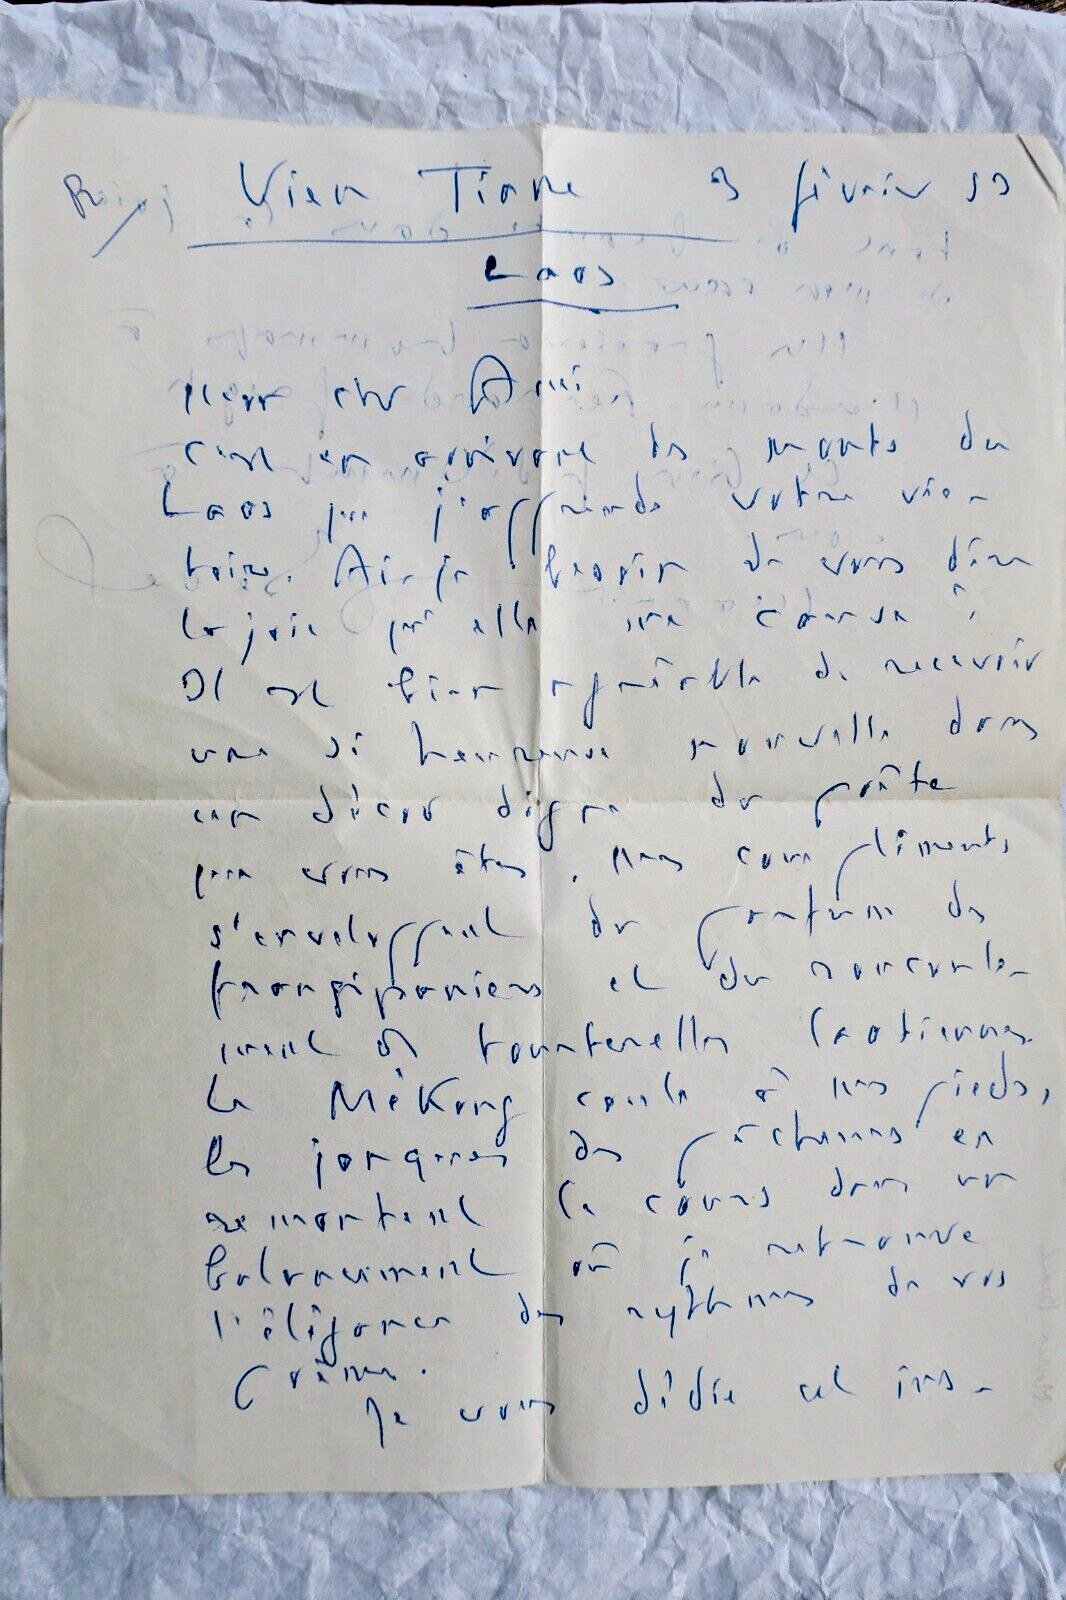 Vien Tiane 3 février 53
Laos
Mon cher Ami
c'est en arrivant des monts du
Laos que j'apprends votre vic-
toire. Ai-je besoin de vous dire
la joie qu'elle m'a causée ;
Il est bien agréable de recevoir
une si heureuse nouvelle dans
un décor digne du poète
que vous êtes. Mes compliments
s'enveloppent du parfum des
frangipaniers et du roucoule-
ment des tourterelles laotiennes.
Le Mékong coule à mes pieds,
les jonques des pêcheurs en
remontent le cours dans un
balancement où je retrouve
l'élégance des rythmes de vos
poèmes.
Je vous dédie cet ins-